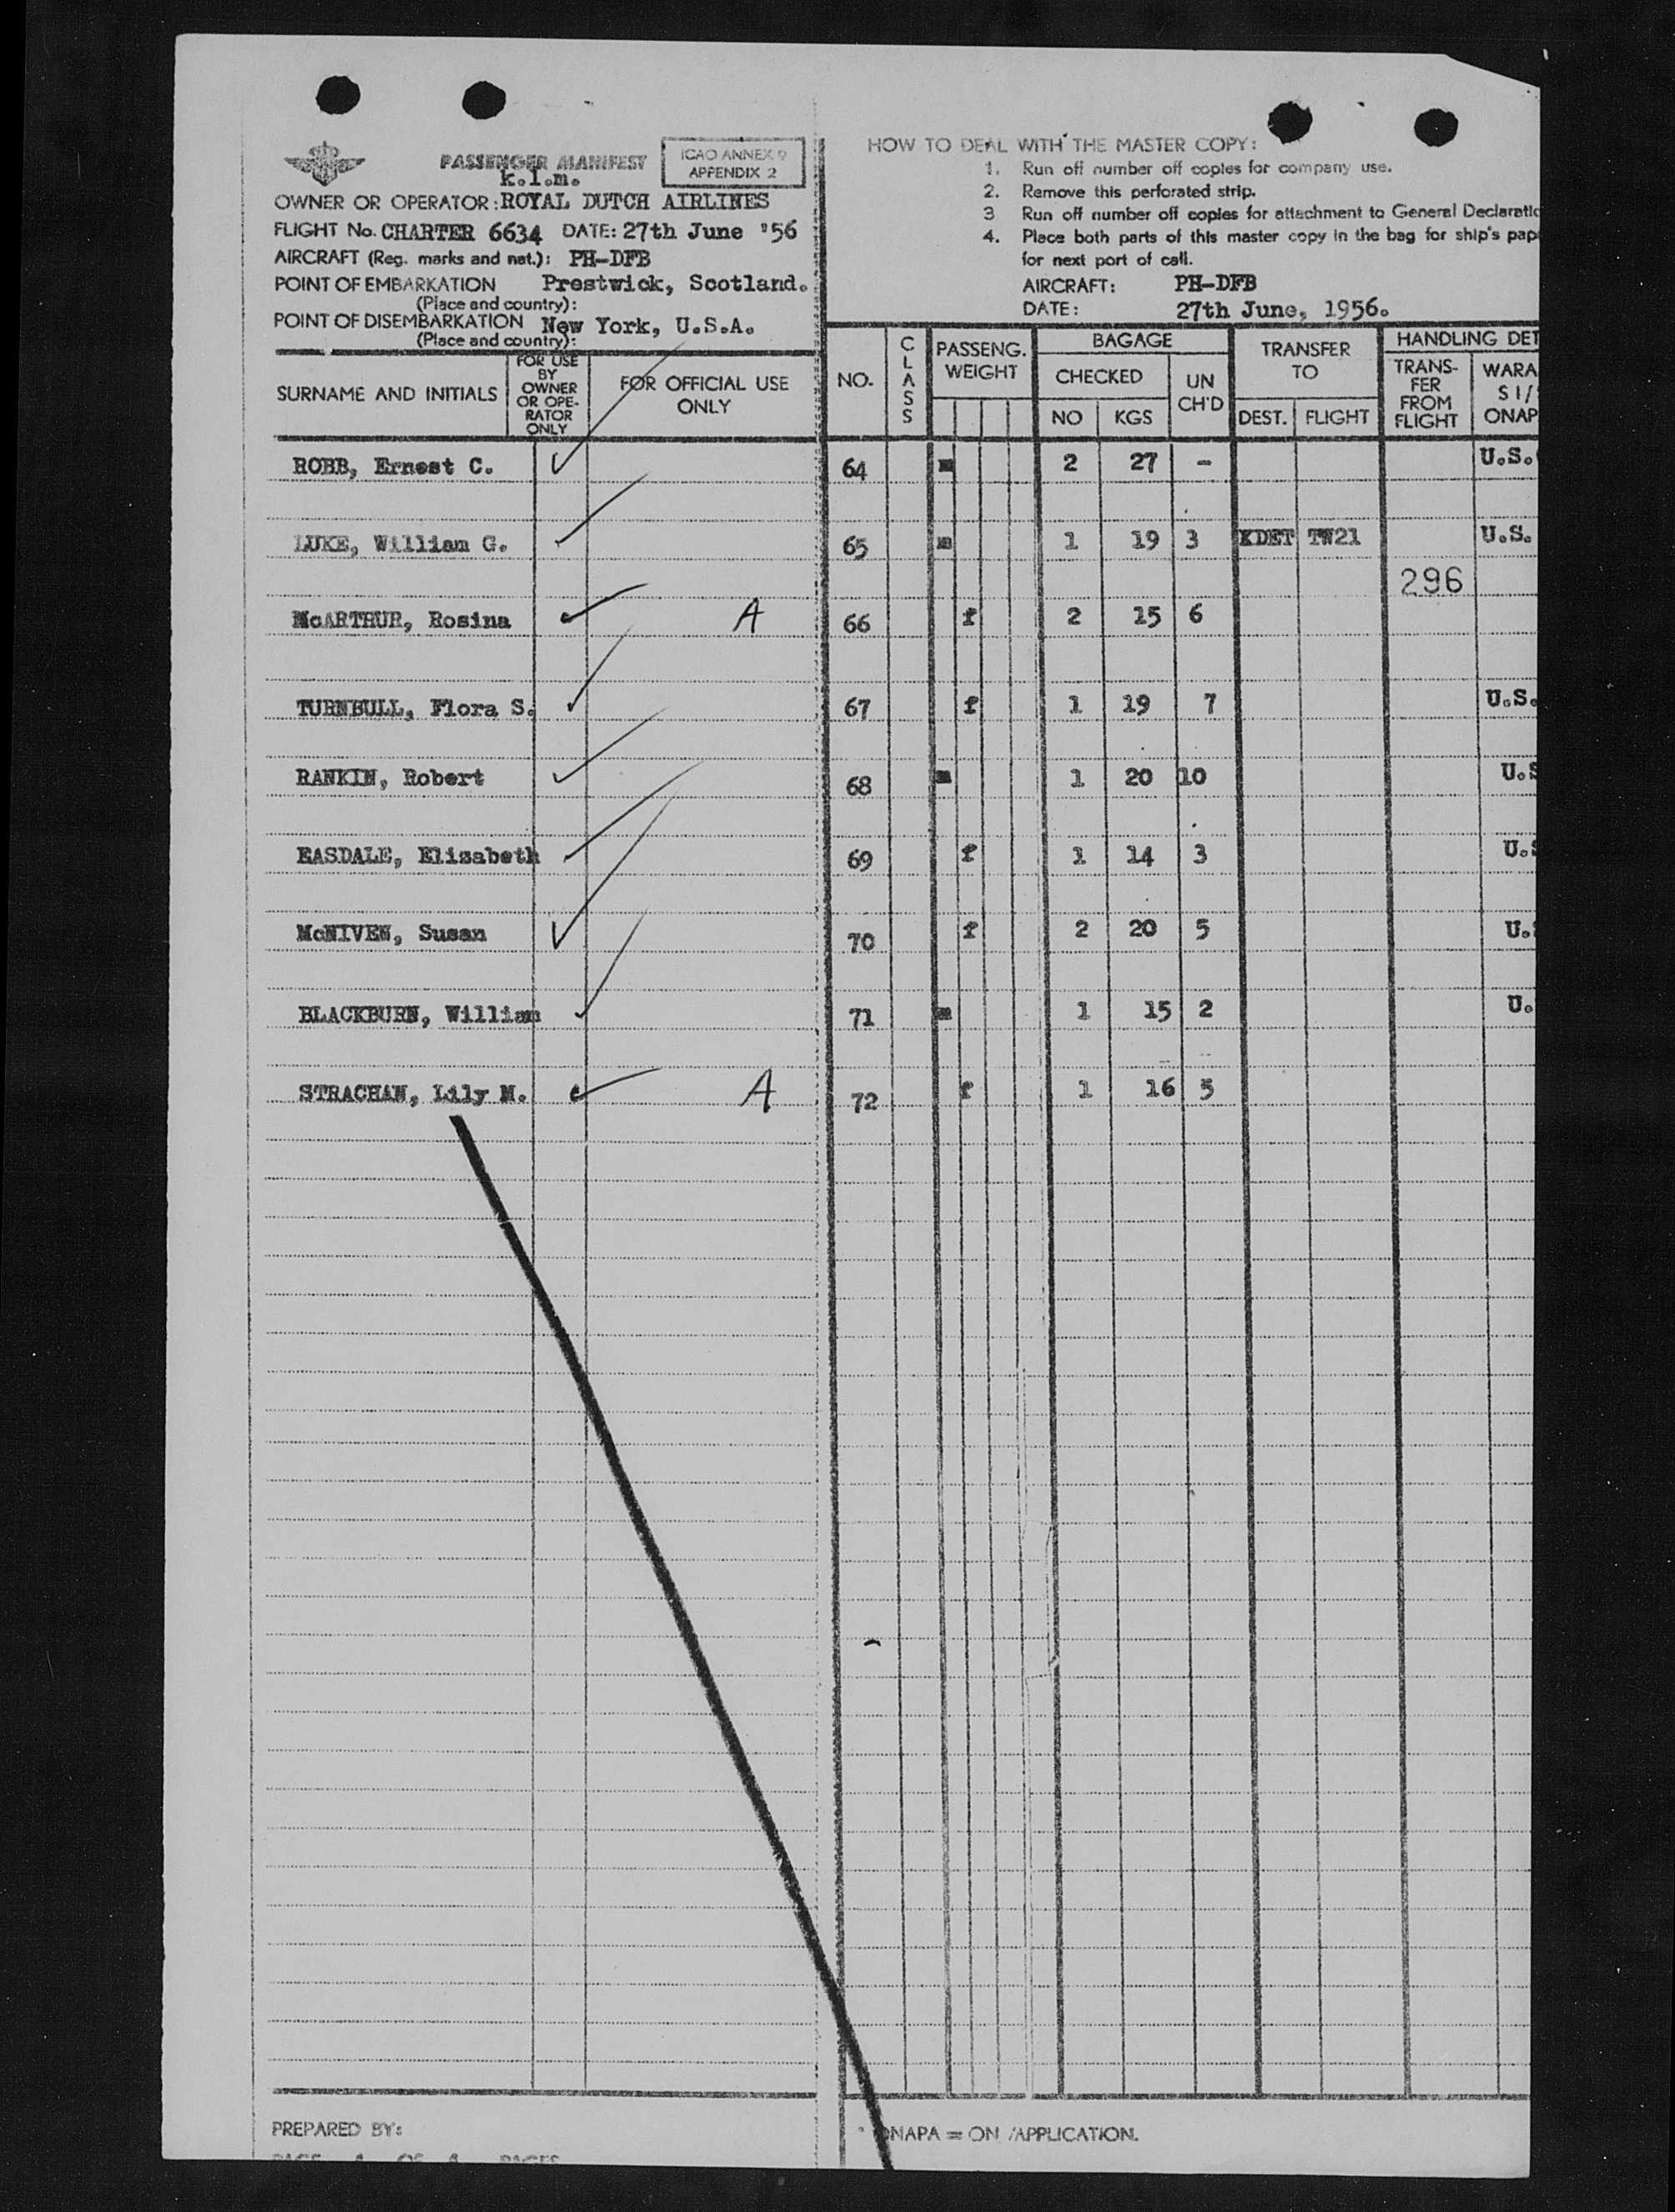 PASSENGER MANIFEST
ICAO ANNEX 9
APPENDIX 2
k.l.m.
OWNER OR OPERATOR: ROYAL DUTCH AIRLINES
FLIGHT No. CHARTER 6634 DATE: 27th June '56
AIRCRAFT (Reg. marks and nat.): PH-DFB
POINT OF EMBARKATION Prestwick, Scotland.
(Place and country):
POINT OF DISEMBARKATION New York, U.S.A.
(Place and country):
HOW TO DEAL WITH THE MASTER COPY:
1. Run off number off copies for company use.
2. Remove this perforated strip.
3 Run off number off copies for attachment to General Declaratio
4. Place both parts of this master copy in the bag for ship's pap
for next port of call.
AIRCRAFT: PH-DFB
DATE: 27th June, 1956.
SURNAME AND INITIALS
FOR USE
BY
OWNER
OR OPE-
RATOR
ONLY
FOR OFFICIAL USE
ONLY
NO.
CLASS
PASSENG.
WEIGHT
BAGAGE
CHECKED
NO KGS
UN
CH'D
TRANSFER
TO
DEST. FLIGHT
HANDLING DET
TRANS-
FER
FROM
FLIGHT
WARA
S I/
ONAP
ROBB, Ernest C. ✓ 64 m 2 27 - U.S.
LUKE, William G. ✓ 65 m 1 19 3 KDET TW21 U.S.
296
McARTHUR, Rosina ✓ A 66 f 2 15 6
TURNBULL, Flora S. ✓ 67 f 1 19 7 U.S.
RANKIN, Robert ✓ 68 m 1 20 10 U.S
EASDALE, Elizabeth ✓ 69 f 1 14 3 U.S
McNIVEN, Susan ✓ 70 f 2 20 5 U.
BLACKBURN, William ✓ 71 m 1 15 2 U.
STRACHAN, Lily M. ✓ A 72 f 1 16 5
PREPARED BY:
ONAPA = ON /APPLICATION.
PAGE 4 OF 4 PAGES